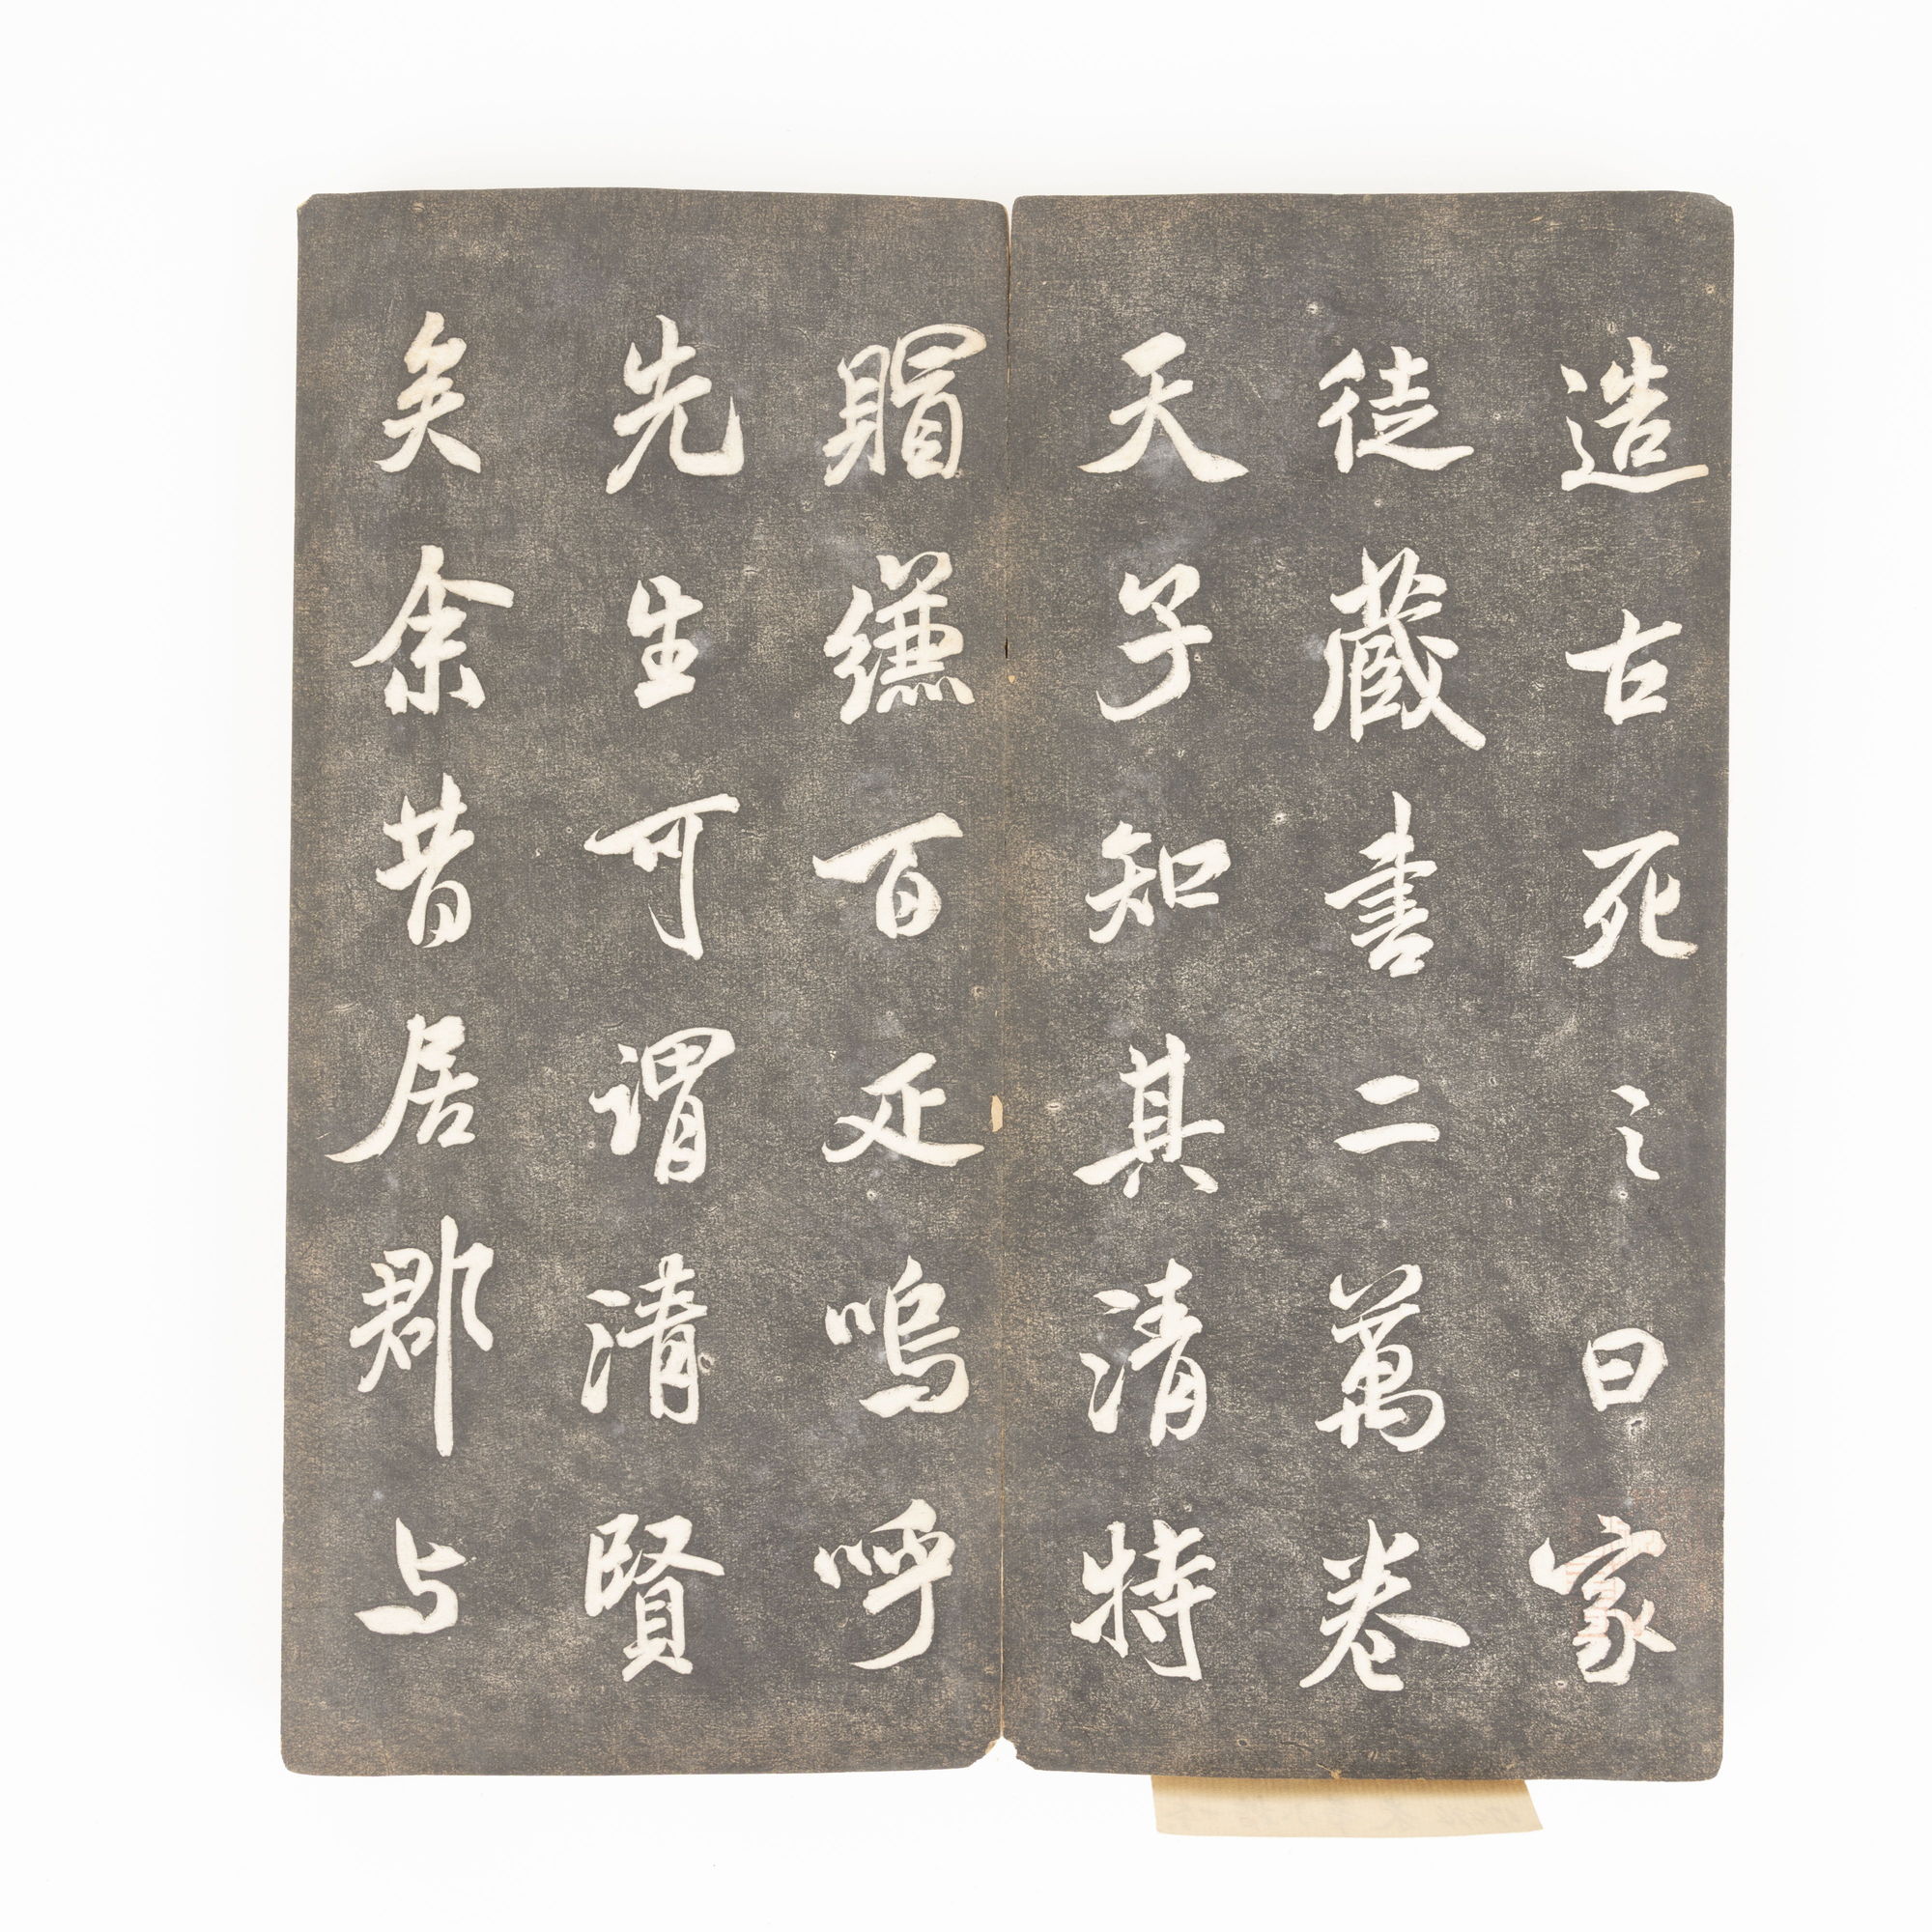 造古死之曰家
徒藏書二萬卷
天子知其清特
賵縑百疋嗚呼
先生可謂清賢
矣余昔居郡与